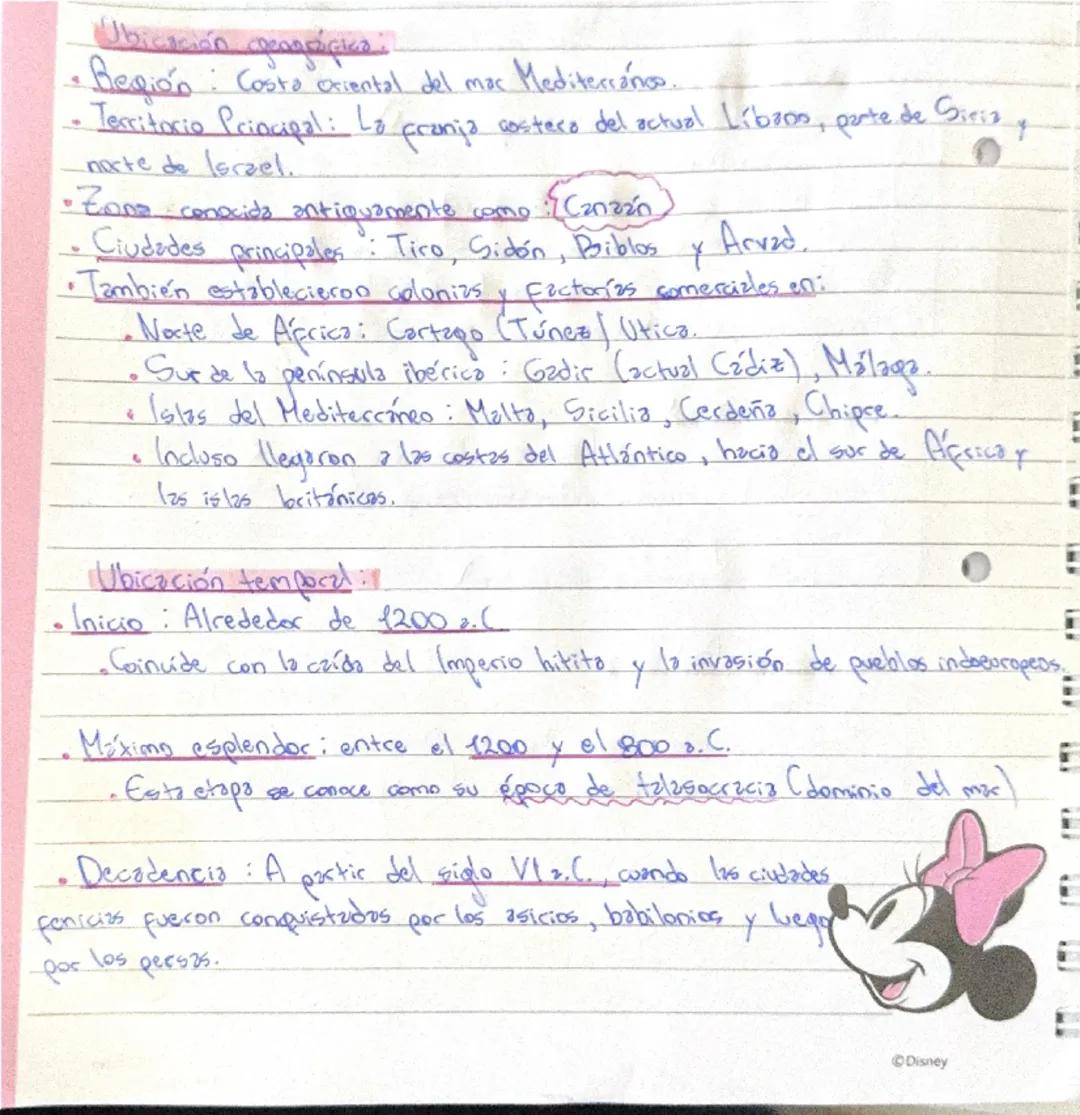 Ubicación geográfica:
• Región : Costa oriental del mar Mediterráneo.
• Territorio Principal: La franja costera del actual Líbano, parte de Siria y
norte de Israel.
• Zona conocida antiguamente como : Canaán
• Ciudades principales : Tiro, Sidón, Biblos y Arvad.
• También establecieron colonias y factorías comerciales en:
• Norte de África: Cartago (Túnez) Utica.
• Sur de la península ibérica : Gadir (actual Cádiz), Málaga.
• Islas del Mediterráneo : Malta, Sicilia, Cerdeña, Chipre.
• Incluso llegaron a las costas del Atlántico, hacia el sur de África y
las islas británicas.
Ubicación temporal:
• Inicio : Alrededor de 1200 a.C
• Coincide con la caída del Imperio hitita y la invasión de pueblos indoeuropeos.
• Máximo esplendor: entre el 1200 y el 800 a.C.
• Esta etapa se conoce como su época de talasocracia (dominio del mar)
• Decadencia : A partir del siglo VI a.C., cuando las ciudades
fenicias fueron conquistadas por los asirios, babilonios y luego
por los persas.
©Disney